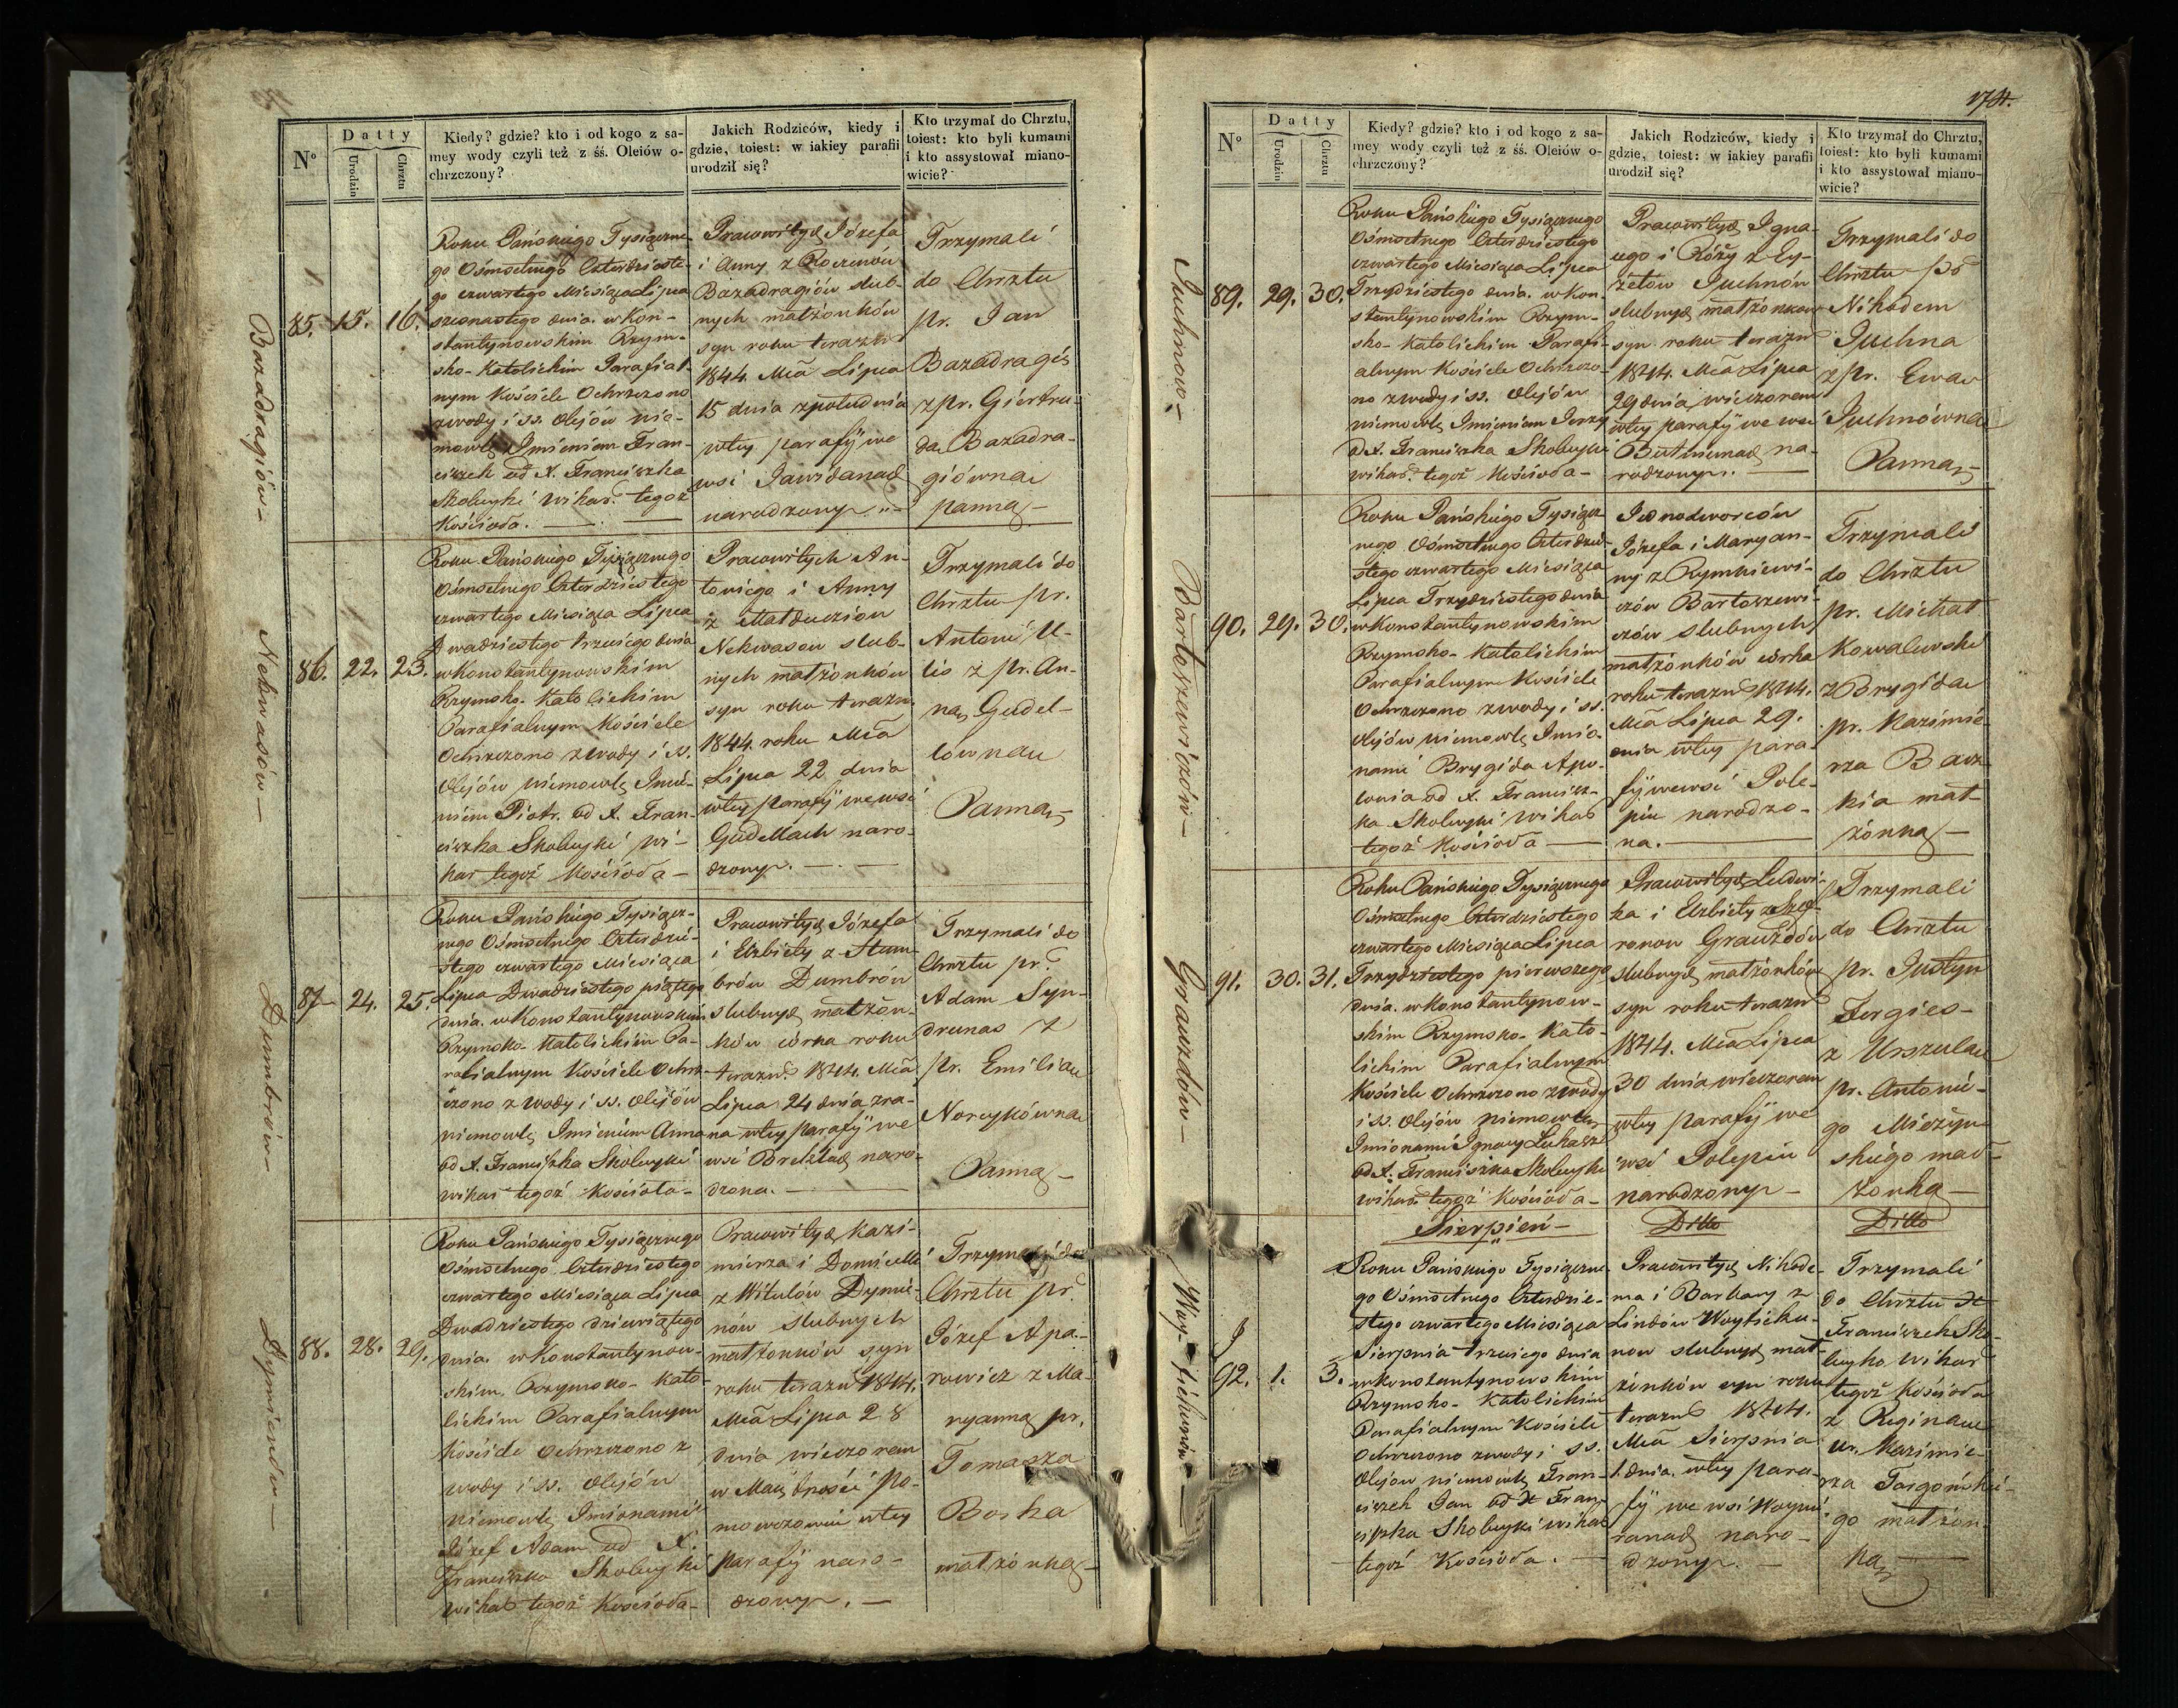 Nº
Datty
Urodzin
Chrztu
Kiedy? gdzie? kto i od kogo z sa-
mey wody czyli też z śś. Oleiów o-
chrzczony?
Jakich Rodziców, kiedy i
gdzie, toiest: w iakiey parafii
urodził się?
Kto trzymał do Chrztu,
toiest: kto byli kumami
i kto assystował miano-
wicie?
Bazadragiów
85. 15. 16.
Roku Pańskiego Tysiączne-
go Ośmsetnego Czterdzieste-
go czwartego Miesiąca Lipca
szesnastego dnia. w Kon-
stantynowskim Rzym-
sko-Katolickim Parafial-
nym Kościele Ochrzczono
z wody i ss. Olejów nie-
mowlę Imieniem Fran-
ciszek od X. Franciszka
Wikar. tegoż
Kościoła.
Pracowitych Józefa
i Anny z
Bazadragiów ślub-
nych małżonków
syn roku teraz.
1844. Mca Lipca
15 dnia z południa
w tey parafij we
wsi
narodzony.
Trzymali
do Chrztu
pr. Jan
Bazadragis
z pr. Giertru-
dą Bazadra-
giówną
panną
Nekwasów
86. 22. 23.
Roku Pańskiego Tysiącznego
Ośmsetnego Czterdziestego
czwartego Miesiąca Lipca
Dwadziestego trzeciego dnia
w Konstantynowskim
Rzymsko-Katolickim
Parafialnym Kościele
Ochrzczono z wody i ss.
Olejów niemowlę Imie-
niem Piotr. od X. Fran-
ciszka wi-
kar tegoż Kościoła
Pracowitych An-
toniego i Anny
z
Nekwasow ślub-
nych małżonków
syn roku teraz.
1844. roku Mca
Lipca 22 dnia
w tey parafij we wsi
Gudellach naro-
dzony.
Trzymali do
Chrztu pr.
Antoni U-
lis z pr. An-
ną Gudel-
lowną
Panną
Dumbrów
87 24. 25.
Roku Pańskiego Tysiącz-
nego Ośmsetnego Czterdzie-
stego czwartego Miesiąca
Lipca Dwadziestego piątego
dnia. w Konstantynowskim
Rzymsko-Katolickim Pa-
rafialnym Kościele Ochrz-
czono z wody i ss. Olejów
niemowlę Imieniem Anna
od X. Franciszka
wikar tegoż Kościoła
Pracowitych Józefa
i Elżbiety z Stum-
brów Dumbrów
ślubnych małżon-
ków córka roku
teraz. 1844. Mca
Lipca 24 dnia zra-
na w tey parafij we
wsi naro-
dzona.
Trzymali do
Chrztu pr.
Adam Syn-
drunas z
pr. Emilią
Panną
Dymienów
88. 28. 29.
Roku Pańskiego Tysiącznego
Ośmsetnego Czterdziestego
czwartego Miesiąca Lipca
Dwadziestego dziewiątego
dnia. w Konstantynow-
skim Rzymsko-Kato-
lickim Parafialnym
Kościele Ochrzczono z
wody i ss. Olejów
niemowlę Imionami
Józef Adam od X.
Franciszka
wikar tegoż Kościoła
Pracowitych Kazi-
mierza i Domicelli
z Witulów Dymie-
nów ślubnych
małżonków syn
roku teraz. 1844.
Mca Lipca 28
dnia wieczorem
w Maiętności Po-
w tey
parafij naro-
dzony.
Trzymali do
Chrztu pr.
Józef Apa-
rowicz z Ma-
ryanną pr.
Tomasza
małżonką
174.
Nº
Datty
Urodzin
Chrztu
Kiedy? gdzie? kto i od kogo z sa-
mey wody czyli też z śś. Oleiów o-
chrzczony?
Jakich Rodziców, kiedy i
gdzie, toiest: w iakiey parafii
urodził się?
Kto trzymał do Chrztu,
toiest: kto byli kumami
i kto assystował miano-
wicie?
Juchnow
89. 29. 30.
Roku Pańskiego Tysiącznego
Ośmsetnego Czterdziestego
czwartego Miesiąca Lipca
Trzydziestego dnia. w Kon-
stantynowskim Rzym-
sko-Katolickim Parafi-
alnym Kościele Ochrzczo-
no z wody i ss. Olejów
niemowlę Imieniem Jerzy
od X. Franciszka
wikar. tegoż Kościoła
Pracowitych Igna-
cego i Róży z Ły-
żetów Juchnów
ślubnych małżonków
syn roku teraz.
1844. Mca Lipca
29 dnia wieczorem
w tey parafij we wsi
na-
rodzony.
Trzymali do
Chrztu pr.
Nikodem
Juchna
z pr. Ewą
Juchnówną
Panną
Bartoszewiczów
90. 29. 30.
Roku Pańskiego Tysiącz-
nego Ośmsetnego Czterdzie-
stego czwartego Miesiąca
Lipca Trzydziestego dnia
w Konstantynowskim
Rzymsko-Katolickim
Parafialnym Kościele
Ochrzczono z wody i ss.
Olejów niemowlę Imio-
nami Brygida Apo-
lonia od X. Francisz-
ka wikar
tegoż Kościoła
Jednodworców
Józefa i Maryan-
ny z Rymkiewi-
czów Bartoszewi-
czów ślubnych
małżonków córka
roku teraz. 1844.
Mca Lipca 29.
dnia w tey para-
fij we wsi Pole-
piu narodzo-
na.
Trzymali
do Chrztu
pr. Michał
Kowalewski
z Brygidą
pr. Kazimie-
rza
mał-
żonką
Grauzdów
91. 30. 31.
Roku Pańskiego Tysiącznego
Ośmsetnego Czterdziestego
czwartego Miesiąca Lipca
Trzydziestego pierwszego
dnia. w Konstantynow-
skim Rzymsko-Kato-
lickim Parafialnym
Kościele Ochrzczono z wody
i ss. Olejów niemowlę
Imionami Ignacy Łukasz
od X. Franciszka
wikar. tegoż Kościoła
Pracowitych Ludwi-
ka i Elżbiety z
Grauzdów
ślubnych małżonków
syn roku teraz.
1844. Mca Lipca
30 dnia wieczorem
w tey parafij we
wsi Polepiu
narodzony
Trzymali
do Chrztu
pr. Justyn
z Urszulą
pr. Antonie-
go Mieżyn-
skiego mał-
żonką
Sierpień
Ditto
Ditto
Woytiekunów
92. 1. 3.
Roku Pańskiego Tysiączne-
go Ośmsetnego Czterdzie-
stego czwartego Miesiąca
Sierpnia trzeciego dnia
w Konstantynowskim
Rzymsko-Katolickim
Parafialnym Kościele
Ochrzczono z wody i ss.
Olejów niemowlę Fran-
ciszek Jan od X Fran-
ciszka wikar
tegoż Kościoła.
Pracowitych Nikode-
ma i Barbary z
Lindów Woytieku-
now ślubnych mał-
żonków syn roku
teraz. 1844.
Mca Sierpnia
1. dnia. w tey para-
fij we wsi
naro-
dzony.
Trzymali
do Chrztu X
Franciszek
Wikar
tegoż Kościoła
z Reginą
Kazimie-
rza Targońskie-
go małżon-
ką